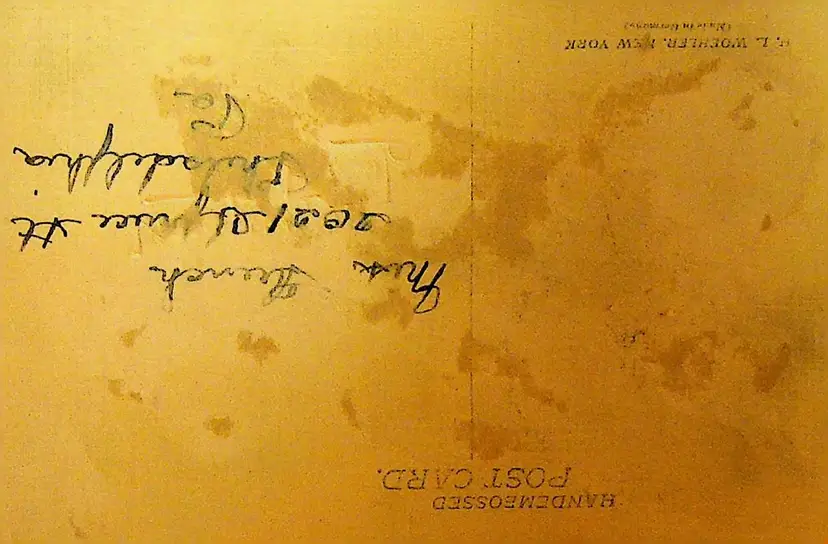 HANDEMBOSSED
POST CARD.
Miss
2021 Spruce St
Philadelphia
Pa
H. L. WOEHLER, NEW YORK
(Made in Germany)